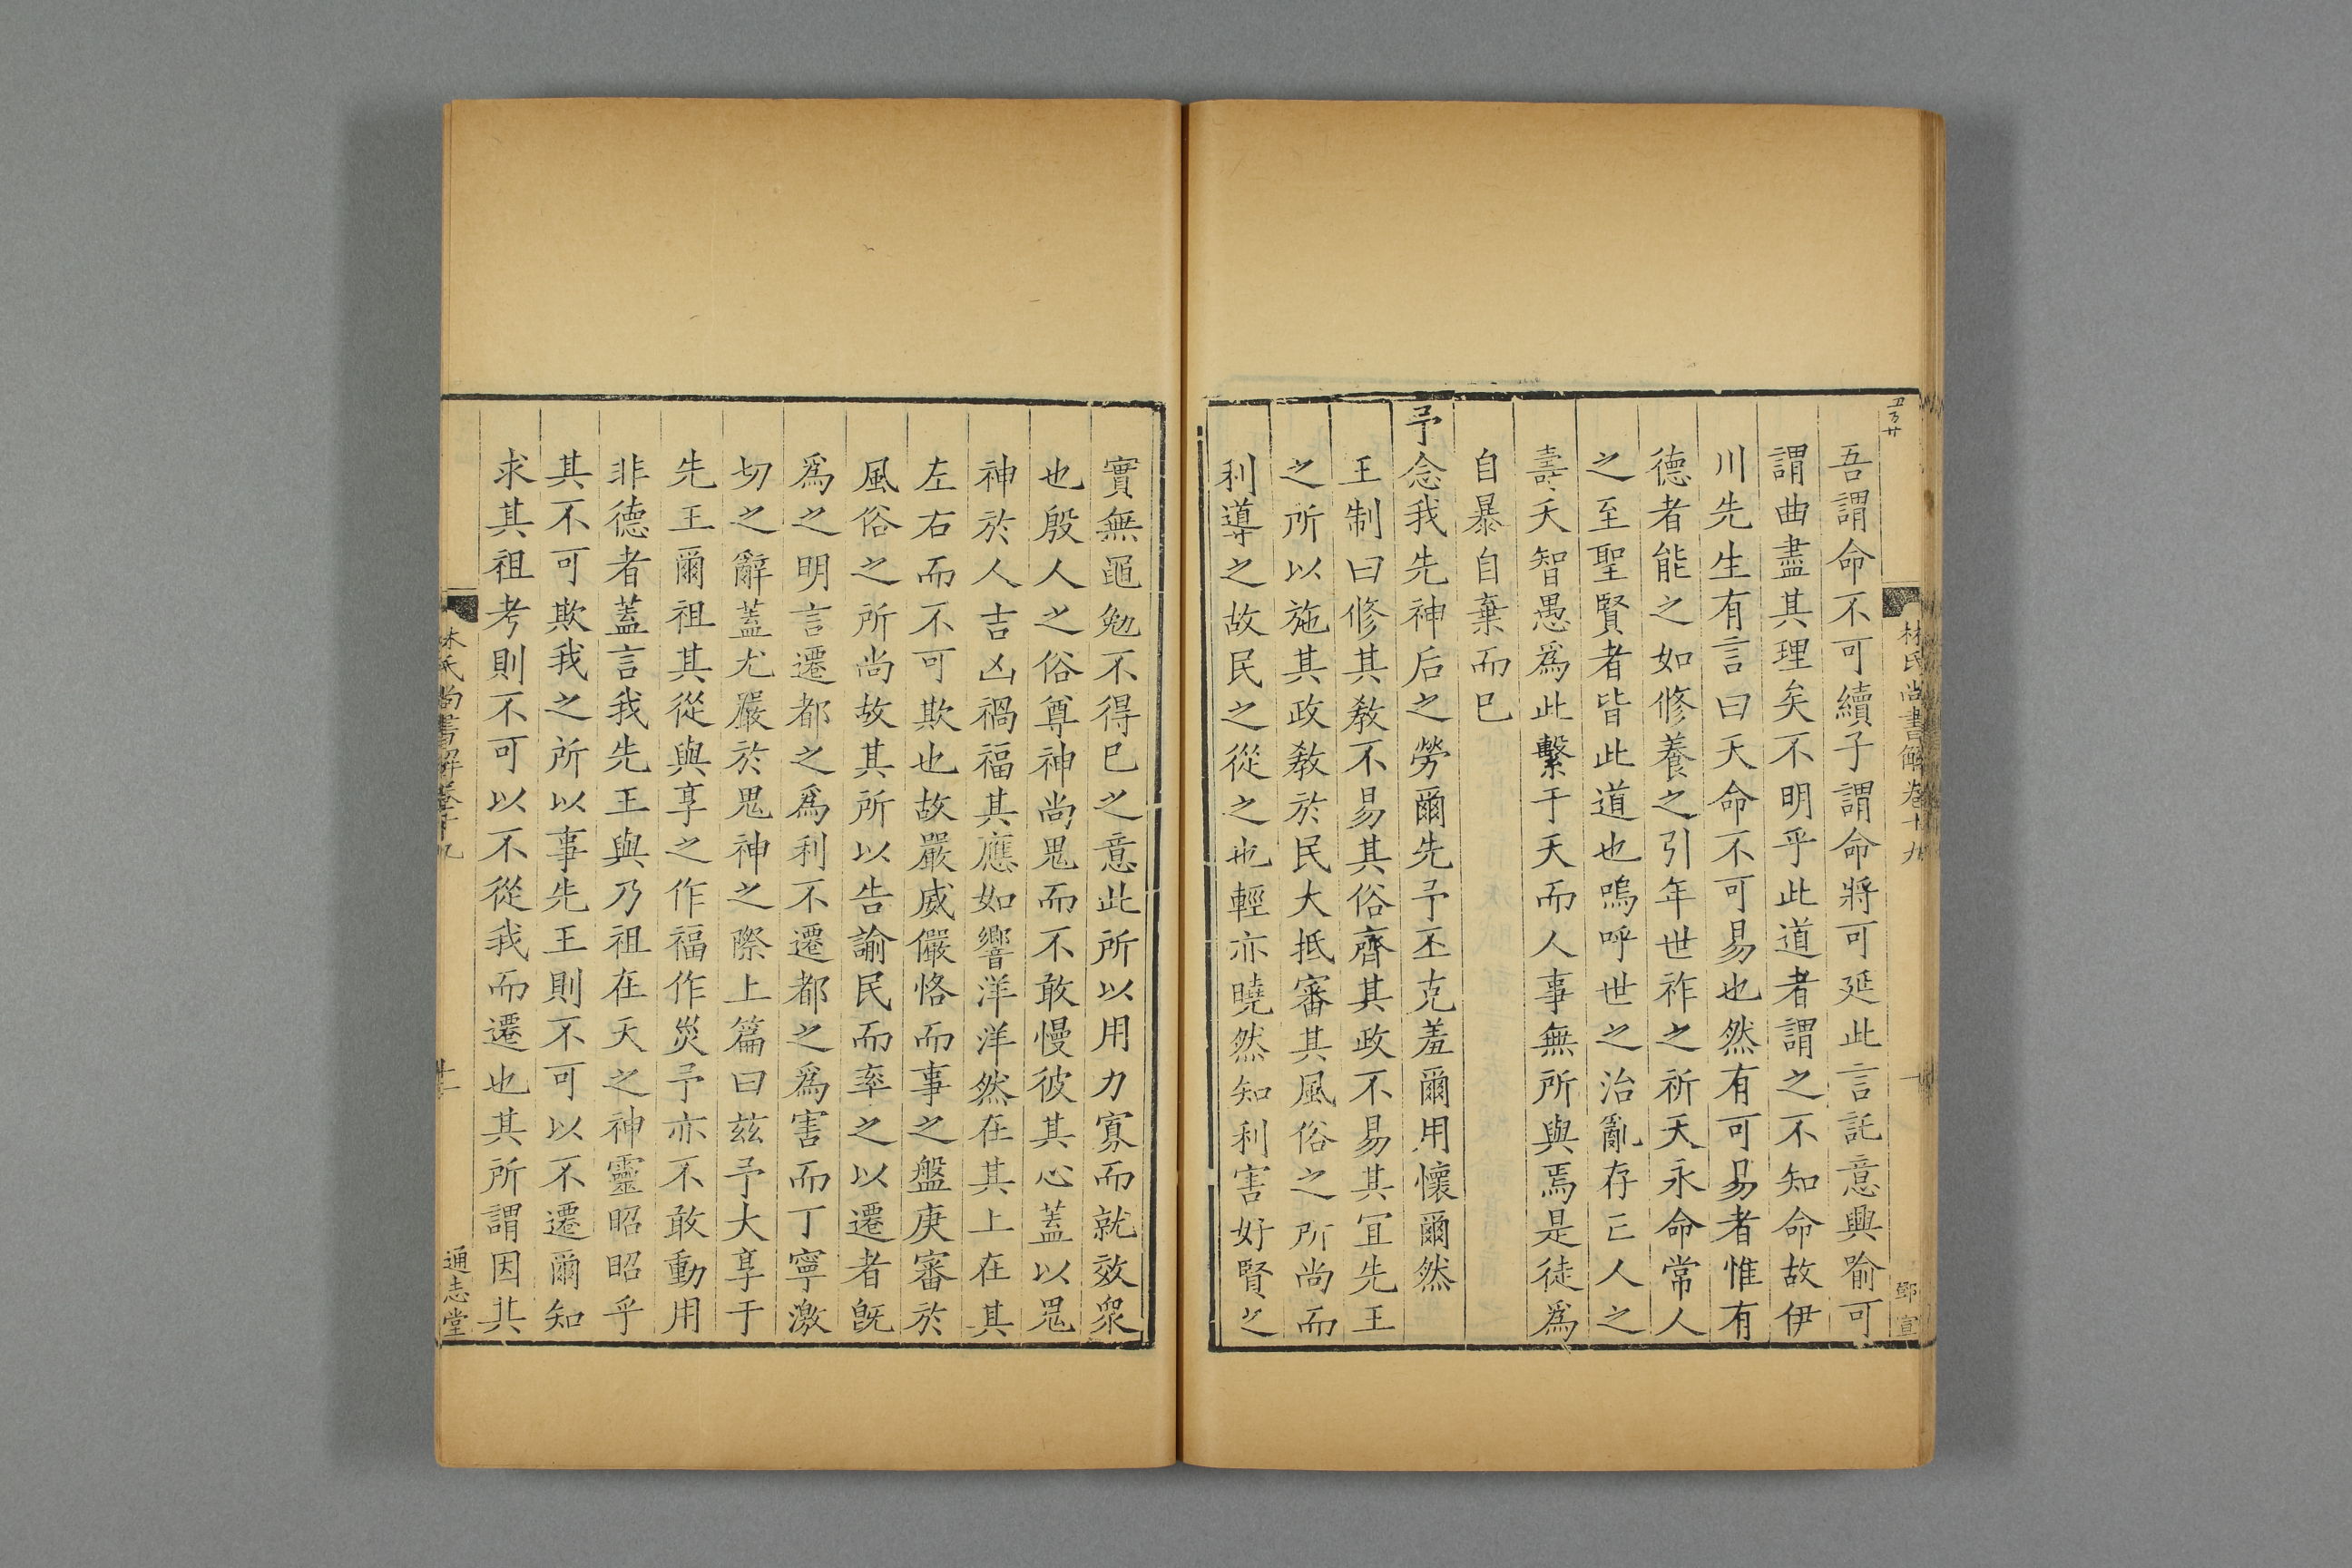 吾謂命不可續子謂命將可延此言託意興喻可
謂曲盡其理矣不明乎此道者謂之不知命故伊
川先生有言曰天命不可易也然有可易者惟有
德者能之如修養之引年世祚之祈天永命常人
之至聖賢者皆此道也嗚呼世之治亂存亡人之
壽夭智愚爲此繫于天而人事無所與焉是徒爲
自暴自棄而巳
予念我先神后之勞爾先予丕克羞爾用懷爾然
王制曰修其敎不易其俗齊其政不易其宜先王
之所以施其政敎於民大抵審其風俗之所尚而
利導之故民之從之也輕亦曉然知利害好賢之
林氏尚書解卷十九
鄧宣
實無黽勉不得巳之意此所以用力寡而就效衆
也殷人之俗尊神尚鬼而不敢慢彼其心蓋以鬼
神於人吉凶禍福其應如響洋洋然在其上在其
左右而不可欺也故嚴威儼恪而事之盤庚審於
風俗之所尚故其所以告諭民而率之以遷者旣
爲之明言遷都之爲利不遷都之爲害而丁寧激
切之辭蓋尤嚴於鬼神之際上篇曰兹予大享于
先王爾祖其從與享之作福作災予亦不敢動用
非德者蓋言我先王與乃祖在天之神靈昭昭乎
其不可欺我之所以事先王則不可以不遷爾知
求其祖考則不可以不從我而遷也其所謂因其
林氏尚書解卷十九
通志堂